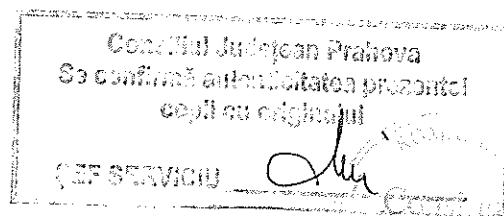 Consiliul Județean Prahova
Se confirmă autenticitatea prezentei
copii cu originalul
ȘEF SERVICIU